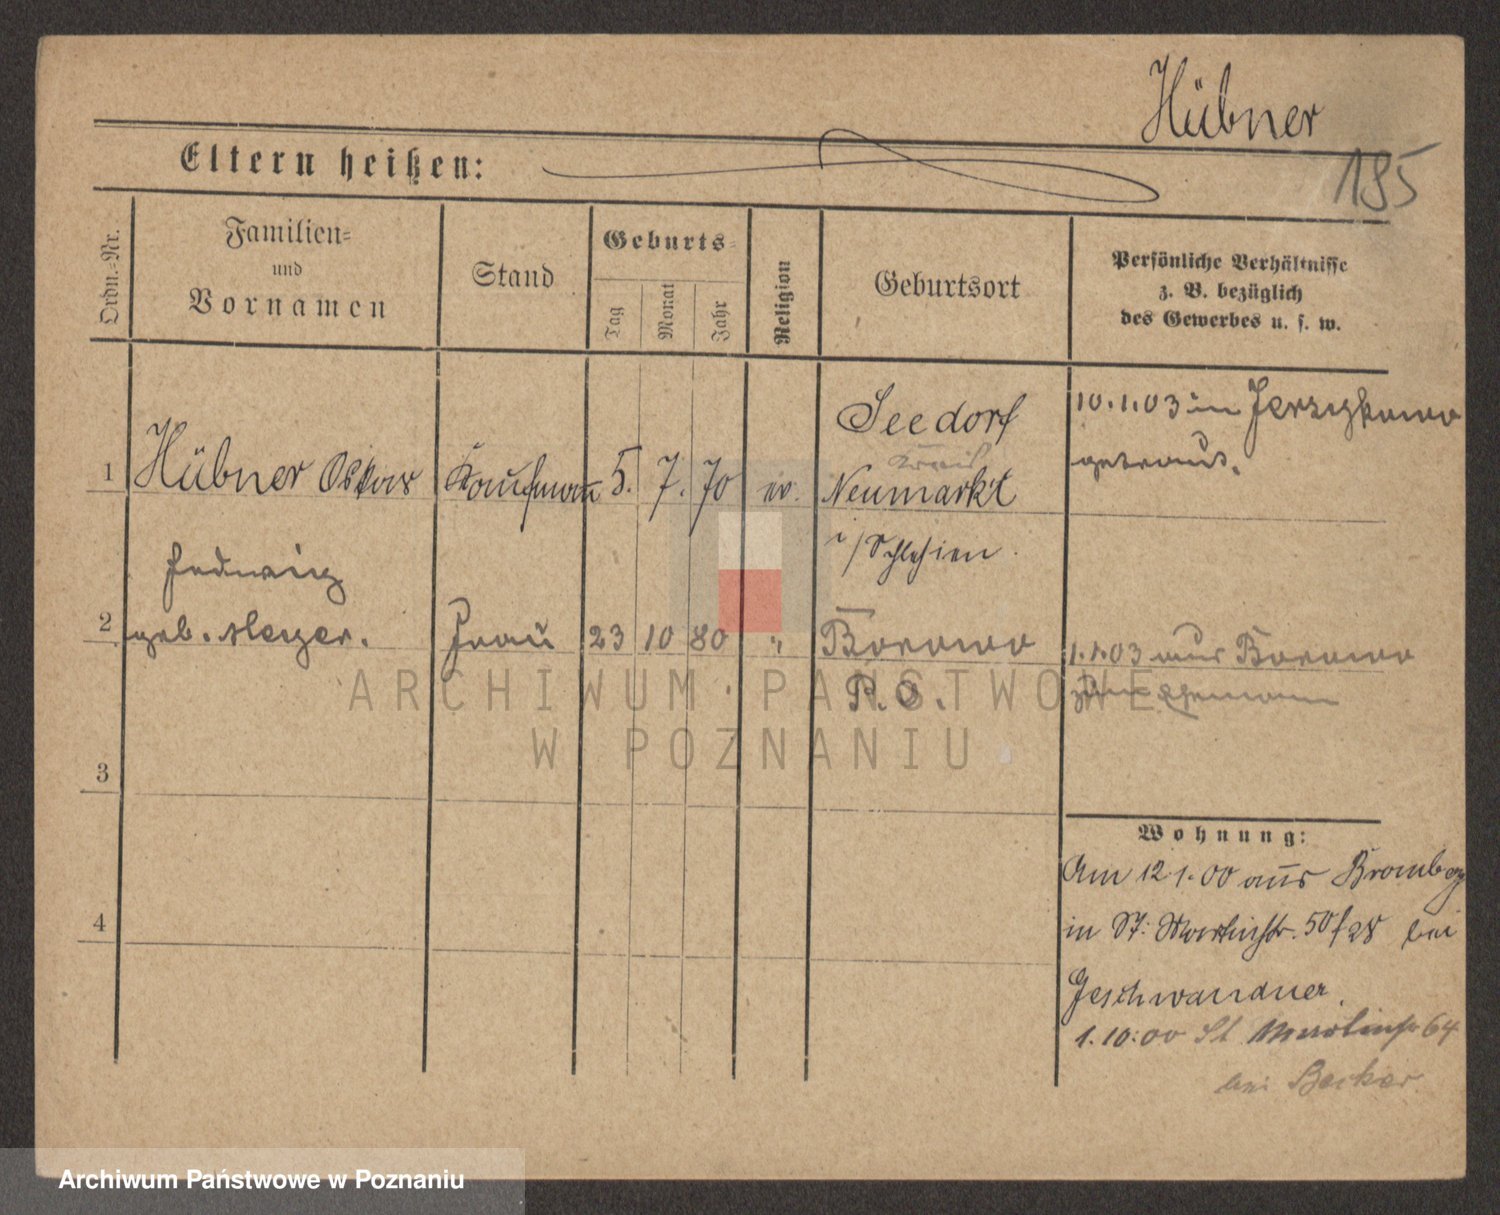 Hübner
195
Eltern heißen:
Ordn.-Nr.
Familien-
und
Vornamen
Stand
Geburts-
Tag
Monat
Jahr
Religion
Geburtsort
Persönliche Verhältnisse
z. B. bezüglich
des Gewerbes u. s. w.
1
Hübner Oskar
Kaufmann
5.
7.
70
ev.
Seedorf
Kreis
Neumarkt
i/Schlesien.
10.1.03 in Jerzykowo
getraut.
2
Hedwig
geb. Metzger.
Frau
23
10
80
"
Borowo
P. O.
1.1.03 aus Borowo
zum Ehemann
3
4
Wohnung:
Am 12.1.00 aus Bromberg
in St. Martinstr. 50/28 bei
Geschwandner.
1.10.00 St Martinstr 64
bei Becker
ARCHIWUM PAŃSTWOWE
W POZNANIU
Archiwum Państwowe w Poznaniu